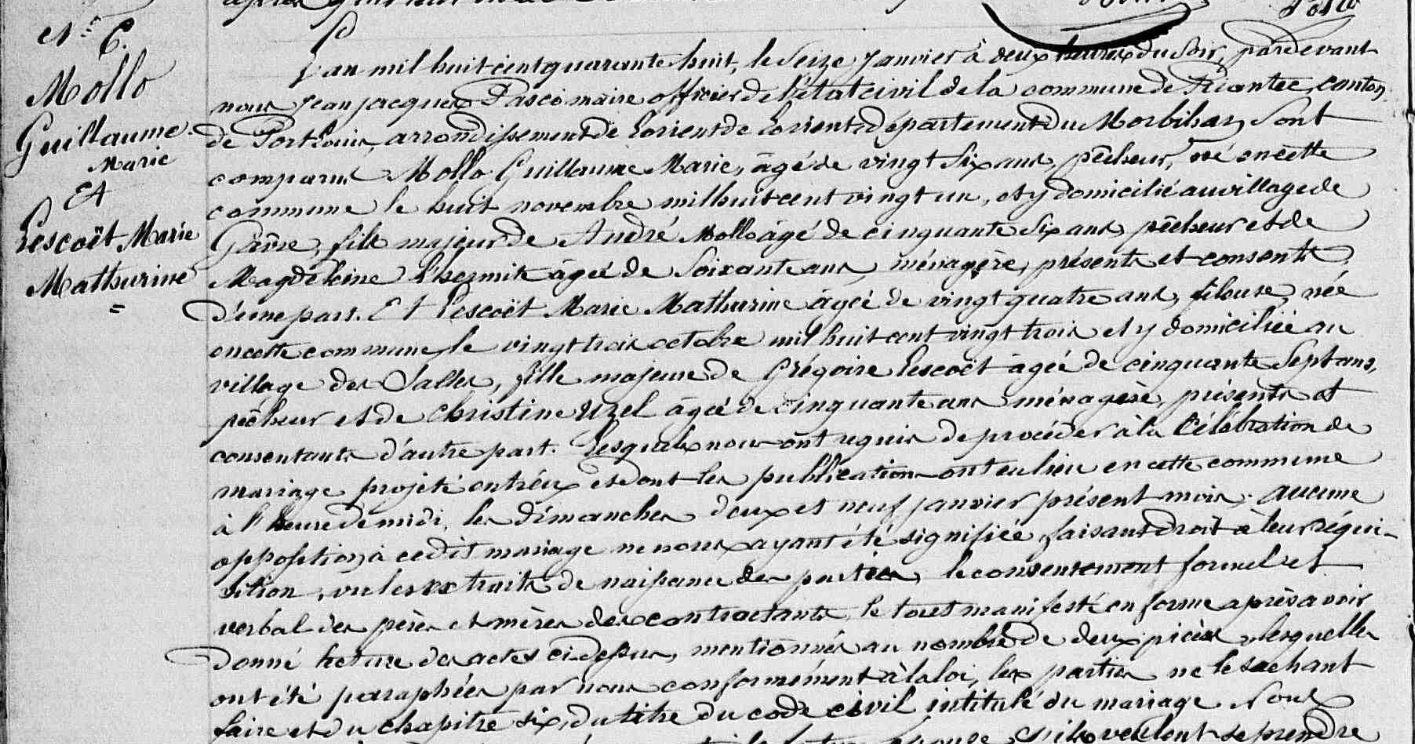 N° 6.
Mollo
Guillaume
Marie
Et
Lescoët Marie
Mathurine
L'an mil huit cent quarante huit, le Seize Janvier à deux heures du Soir, pardevant
nous Jean Jacques Pasco maire officier de l'état civil de la commune de Riantec, canton
de Port Louis, arrondissement de Lorient de Lorient, département du Morbihan, Sont
comparus Mollo Guillaume Marie, âgé de vingt Six ans, pêcheur, né en cette
commune le huit novembre mil huit cent vingt un, et y domicilié au village de
Gâvre, fils majeur de André Mollo âgé de cinquante Six ans, pêcheur et de
Magdeleine l'hermite âgée de Soixante ans ménagère, présents et consents,
d'une part. Et Lescoët Marie Mathurine âgée de vingt quatre ans, fileuse, née
en cette commune le vingt trois octobre mil huit cent vingt trois et y domiciliée au
village des Salles, fille majeure de Grégoire Lescoët âgée de cinquante Sept ans,
pêcheur et de Christine Uzel âgée de cinquante ans ménagère, présents et
consentants d'autre part. Lesquels nous ont requis de procéder à la Célébration de
mariage projeté entr'eux et dont les publications ont eu lieu en cette commune
à l'heure de midi, les dimanches deux et neuf janvier présent mois. aucune
opposition à cedit mariage ne nous ayant été signifiée, faisant droit à leur réqui-
sition, vu les extraits de naissance des parties, le consentement formel et
verbal des pères et mères des contractants, le tout manifesté en forme après avoir
donné lecture des actes ci dessus, mentionnés au nombre de deux pièces lesquelles
ont été paraphées par nous conformément à la loi, les parties ne le sachant
faire et du chapitre six, du titre du code civil intitulé du mariage Nous
S'ils veulent se prendre